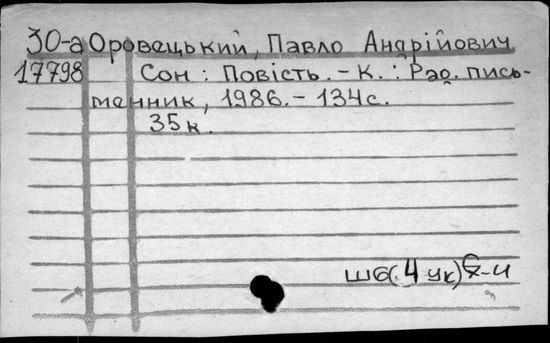 30-а Оровецький, Павло Андрійович
17798 Сон : Повість. - К. : Рад. пись-
менник, 1986. - 134 с.
35 к.
шб(4 ук)